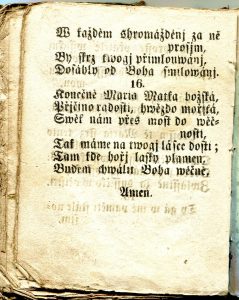 W každém shromážděnj za ně
prosjm,
By skrz twogj přimlouwánj,
Dosáhly od Boha smilowánj.
16.
Konečně Maria Matka božská,
Přjčino radosti, hwězdo mořská,
Swěť nám přes most do wěč-
nosti,
Tak máme na twogj lásce dosti;
Tam kde hořj lásky plamen,
Budem chwálit Boha wěčně,
Amen.